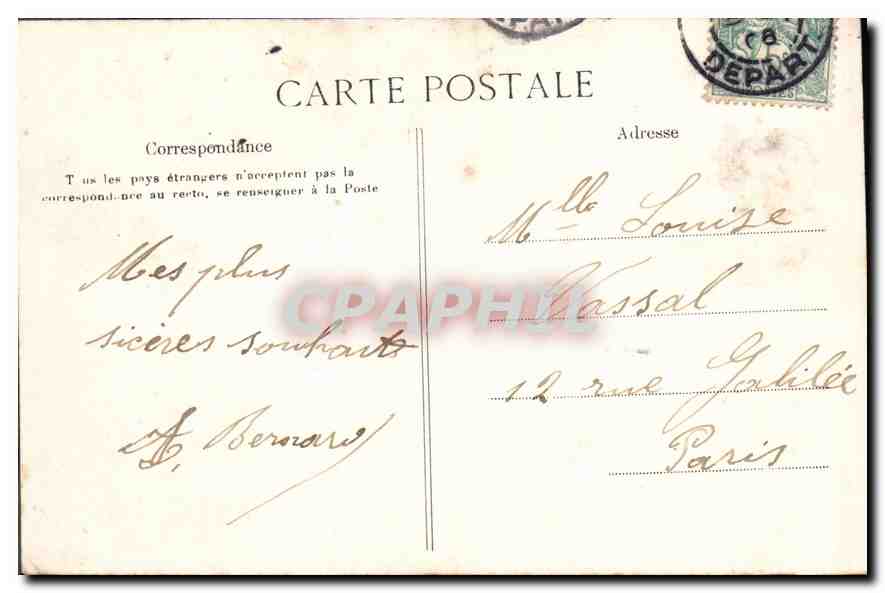 CARTE POSTALE
Correspondance
T us les pays étrangers n'acceptent pas la
correspondance au recto, se renseigner à la Poste
Mes plus
sicères souhaits
A. Bernard
Adresse
Mlle Louise
Vassal
12 rue Galilée
Paris
08
DEPART
CPAPHIL